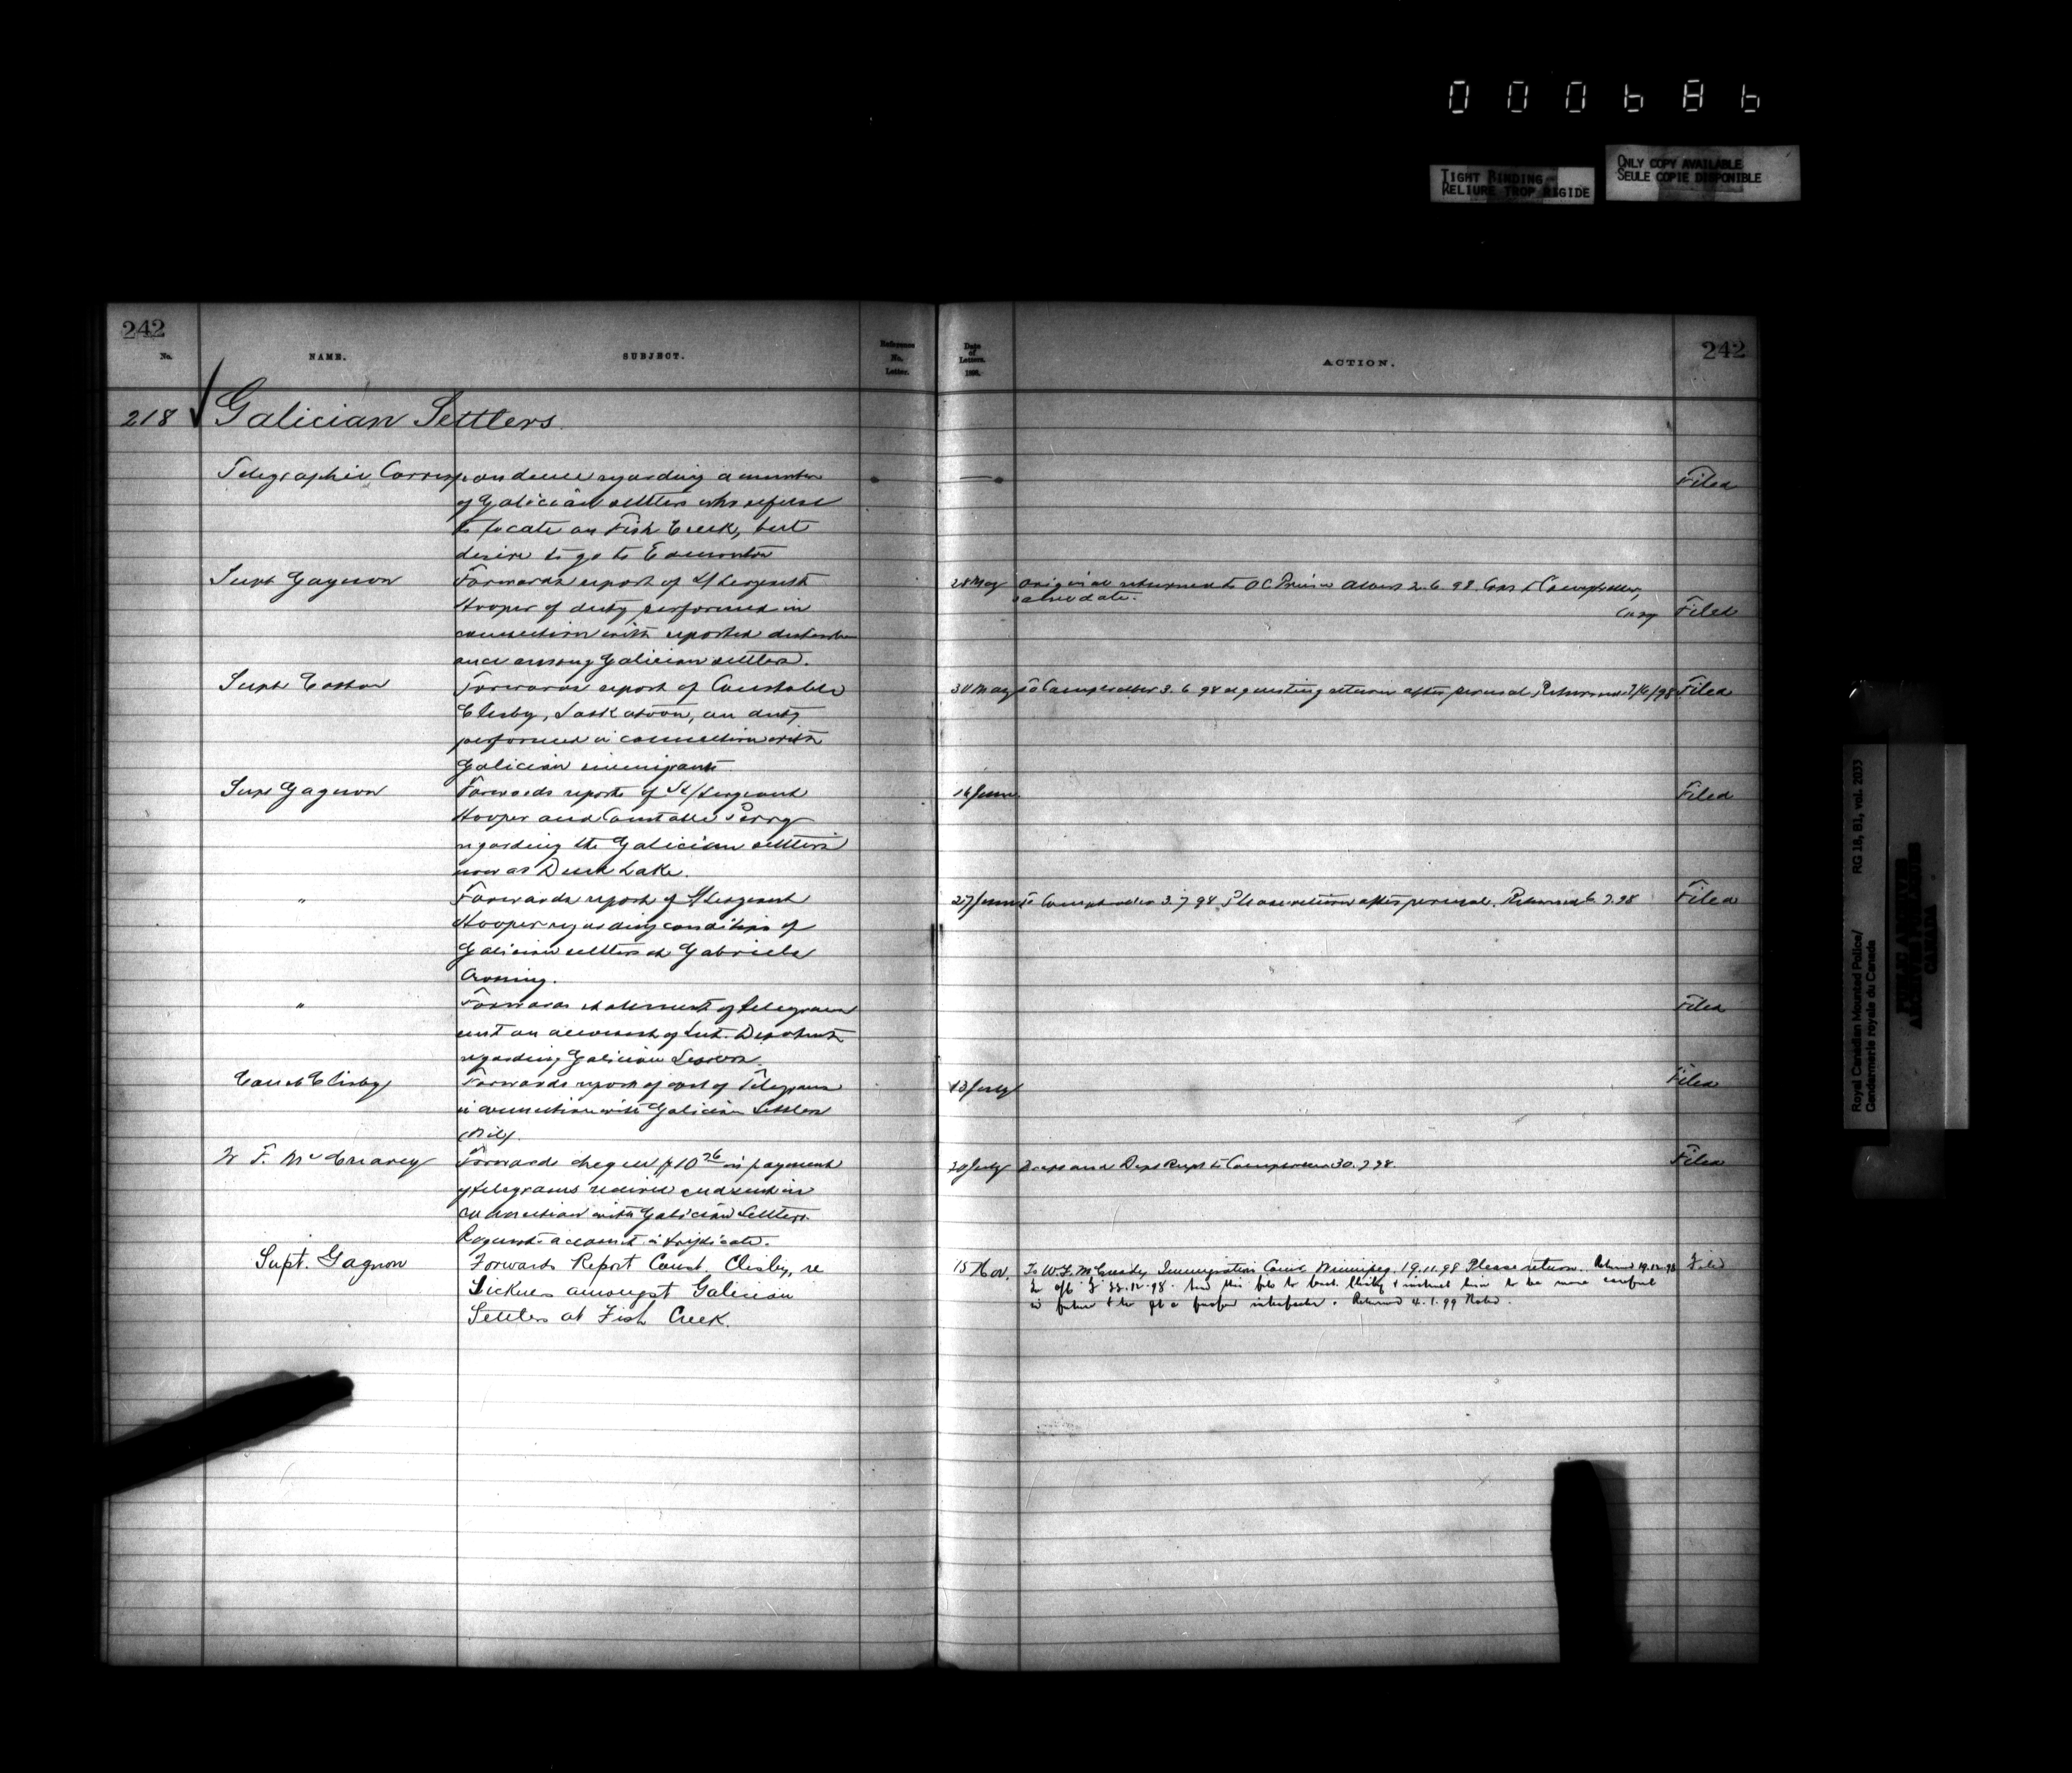 000686
TIGHT BINDING
RELIURE TROP RIGIDE
ONLY COPY AVAILABLE
SEULE COPIE DISPONIBLE
242
No.
NAME.
SUBJECT.
Reference No. Letter.
Date of Letters. 189
ACTION.
242
218 Galician Settlers
Telegraphic Correspondence regarding a number
Filed
of Galician settlers who refuse
to locate on Fish Creek, but
desire to go to Edmonton
Supt Gagnon
Forwards report of S/Sergeant
28 May
Original returned to OC Prince Albert 2.6.98. Copy to Comptroller,
same date.
Hooper of duty performed in
Copy
Filed
connection with reported disturb
ance among Galician settlers.
Supt
Forwards report of Constable
30 May
To Comptroller 3.6.98 requesting return after perusal, Returned 7/6/98
Filed
Clisby, Saskatoon, on duty
performed in connection with
Galician immigrants
Supt Gagnon
Forwards reports of St/Sergeant
14 June
Filed
Hooper and Constable Perry
regarding the Galician settlers
now at Duck Lake.
"
Forwards report of S/Sergeant
27 June
To Comptroller 3.7.98 Please return after perusal. Returned 6.7.98
Filed
Hooper regarding condition of
Galician settlers at Gabriels
Crossing.
"
Forwards statement of telegrams
Filed
sent on account of Int. Department
regarding Galician Settlers
Const Clisby
Forwards report of cost of Telegrams
13 July
Filed
in connection with Galician Settlers
(Nil).
W F. McCreary
Forwards cheque $10 26 in payment
20 July
and Dept Rcpt to Comptroller 30.7.98.
Filed
of telegrams received and sent in
connection with Galician Settlers.
Requests account in triplicate.
Supt. Gagnon
Forwards Report Const. Clisby, re
15 Nov.
To W.F. McCreary Immigration Winnipeg. 19.11.98 Please return. Returned 19.12.98
Filed
Sickness amongst Galician
23.12.98. this file to Const. Clisby & instruct him to be more careful
in future & to get a proper interpreter. Returned 4.1.99 Noted.
Settlers at Fish Creek.
Royal Canadian Mounted Police/
Gendarmerie royale du Canada
RG 18, B1, vol. 2033
PUBLIC ARCHIVES
ARCHIVES PUBLIQUES
CANADA